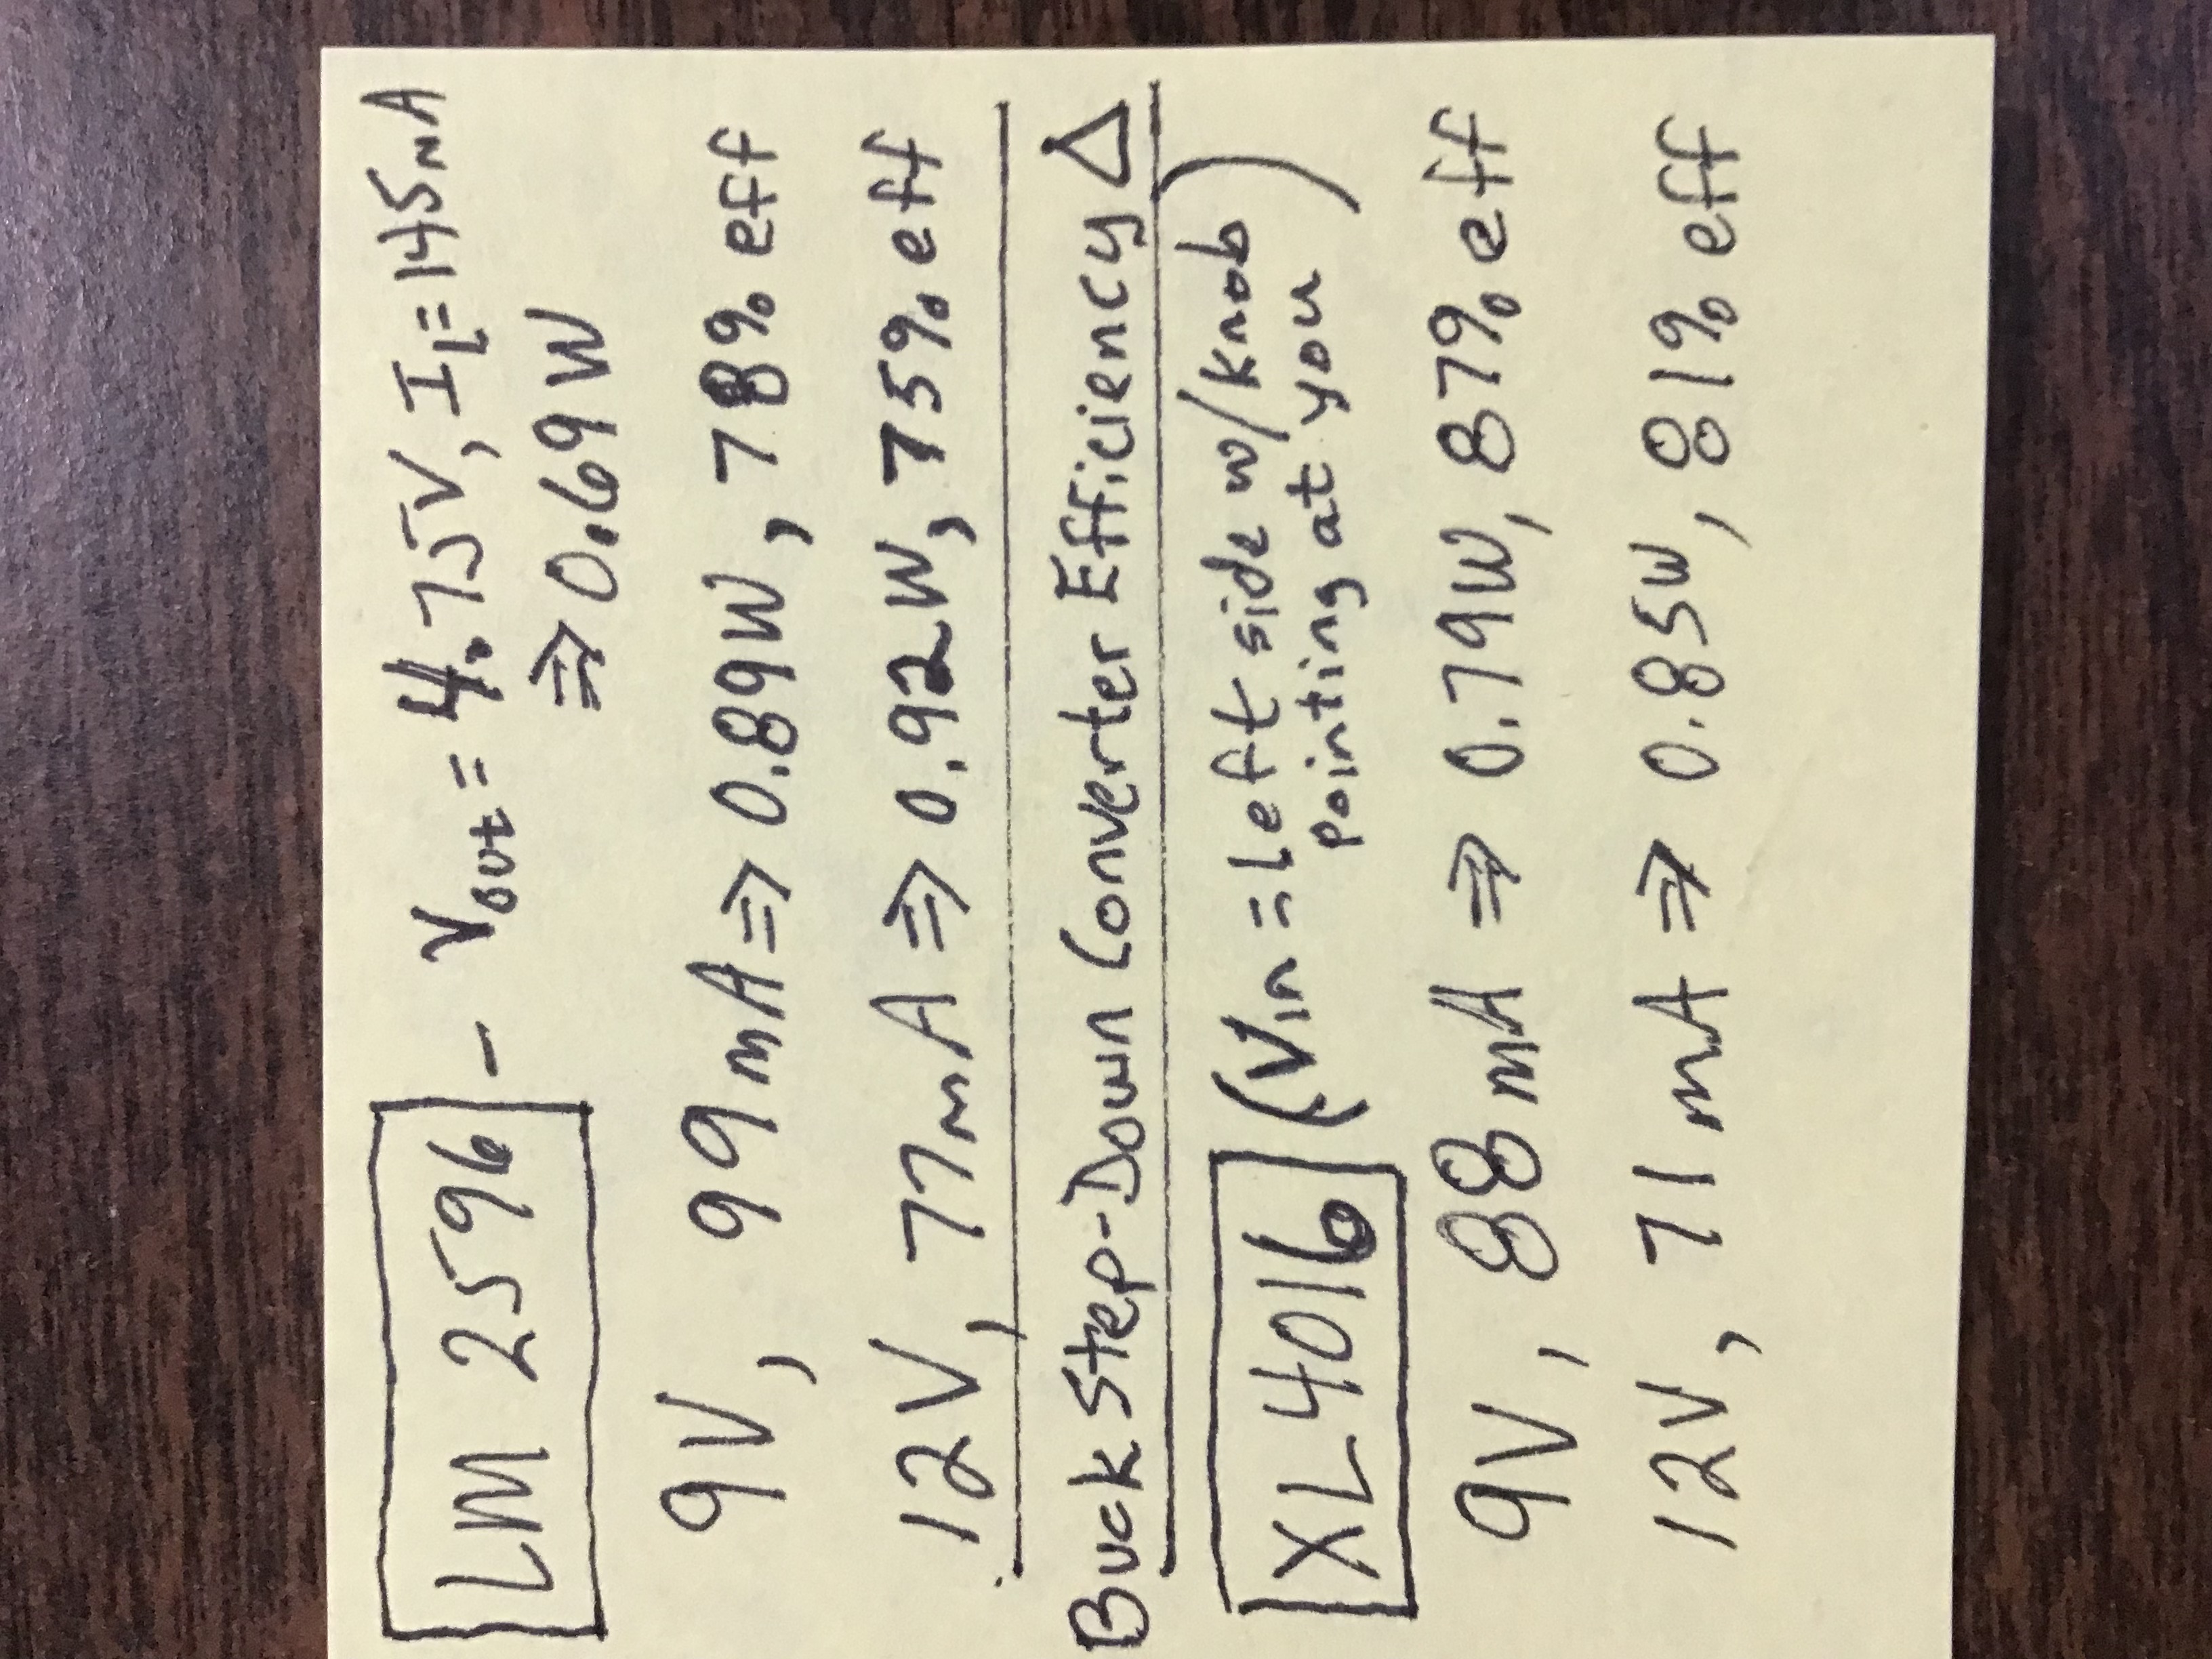 LM 2596 - Vout = 4.75V, IL = 145mA
⇒ 0.69 W
9V, 99mA ⇒ 0.89W, 78% eff
12V, 77mA ⇒ 0.92W, 75% eff
Buck Step-Down Converter Efficiency Δ
XL4016 (Vin = Left side w/ knob
pointing at you)
9V, 88mA ⇒ 0.79W, 87% eff
12V, 71mA ⇒ 0.85W, 81% eff